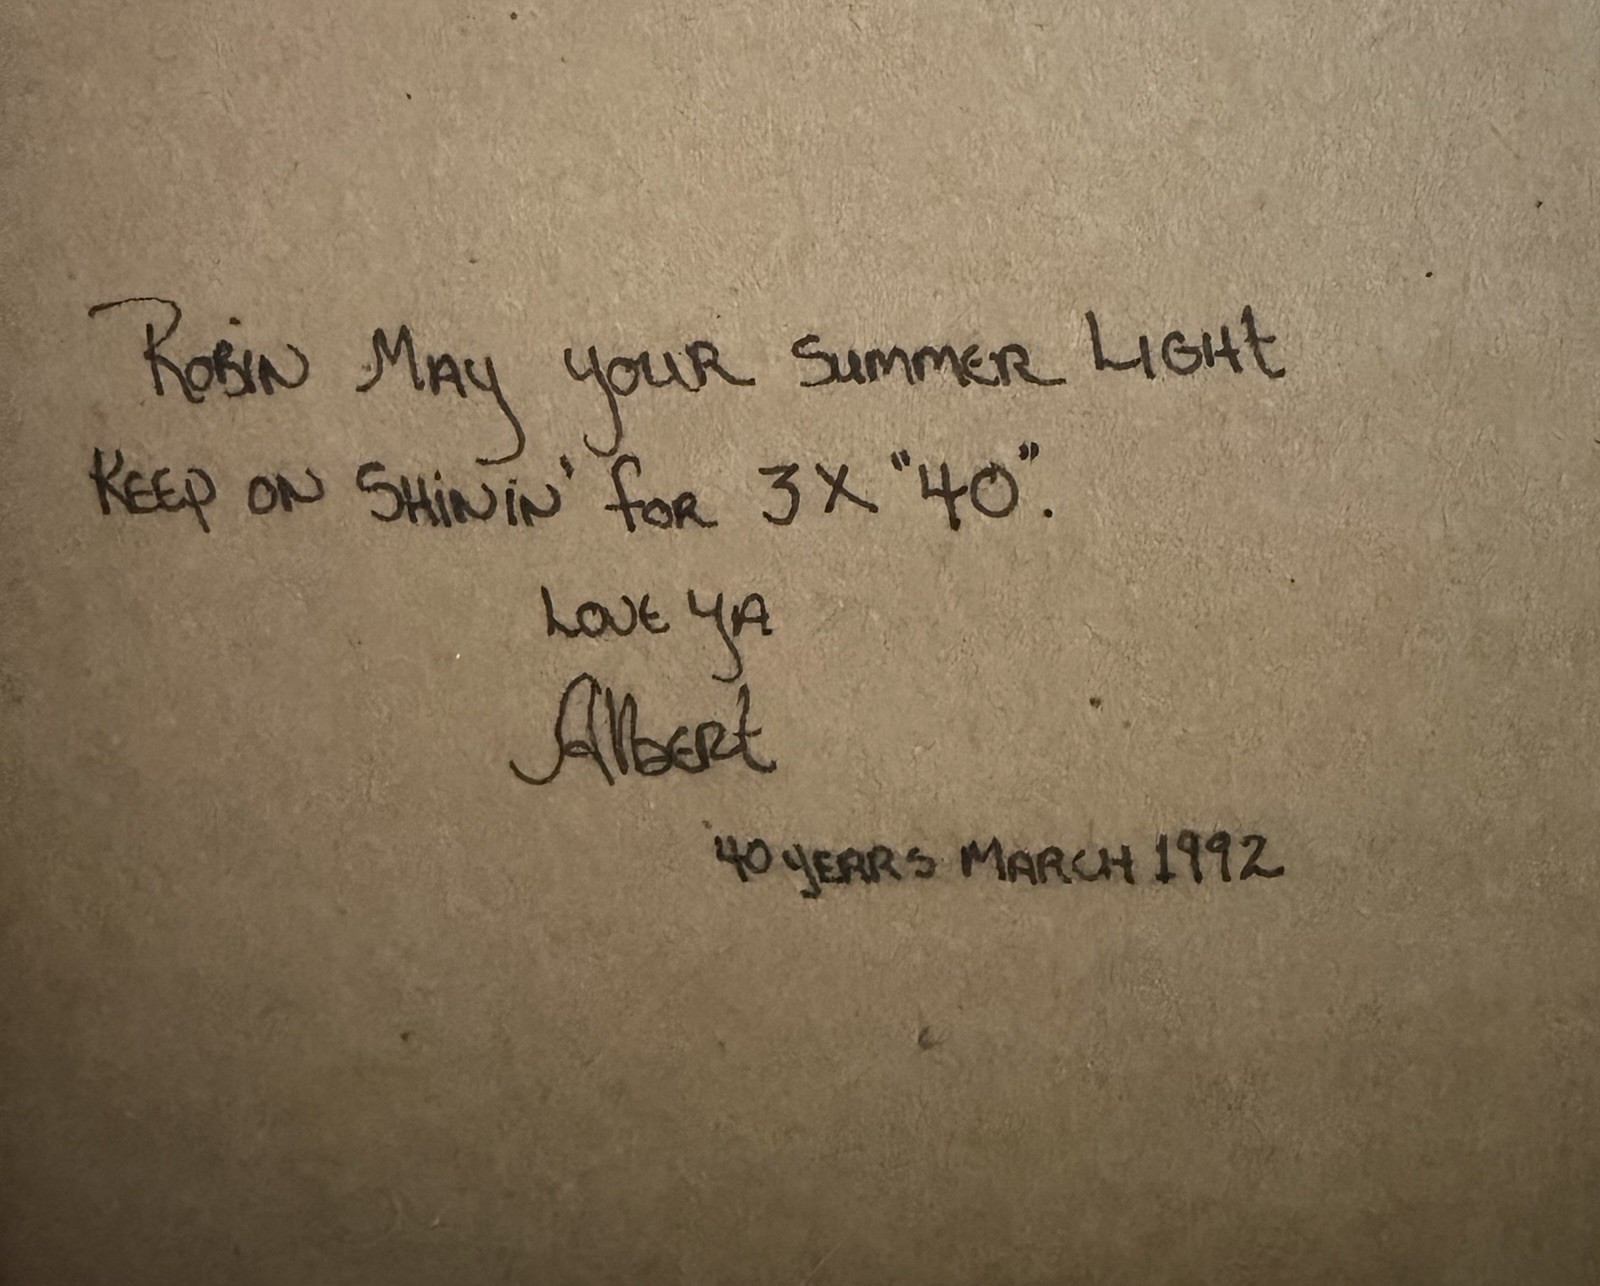 Robin May your summer Light
Keep on Shinin' for 3X "40".
Love ya
Albert
40 years March 1992